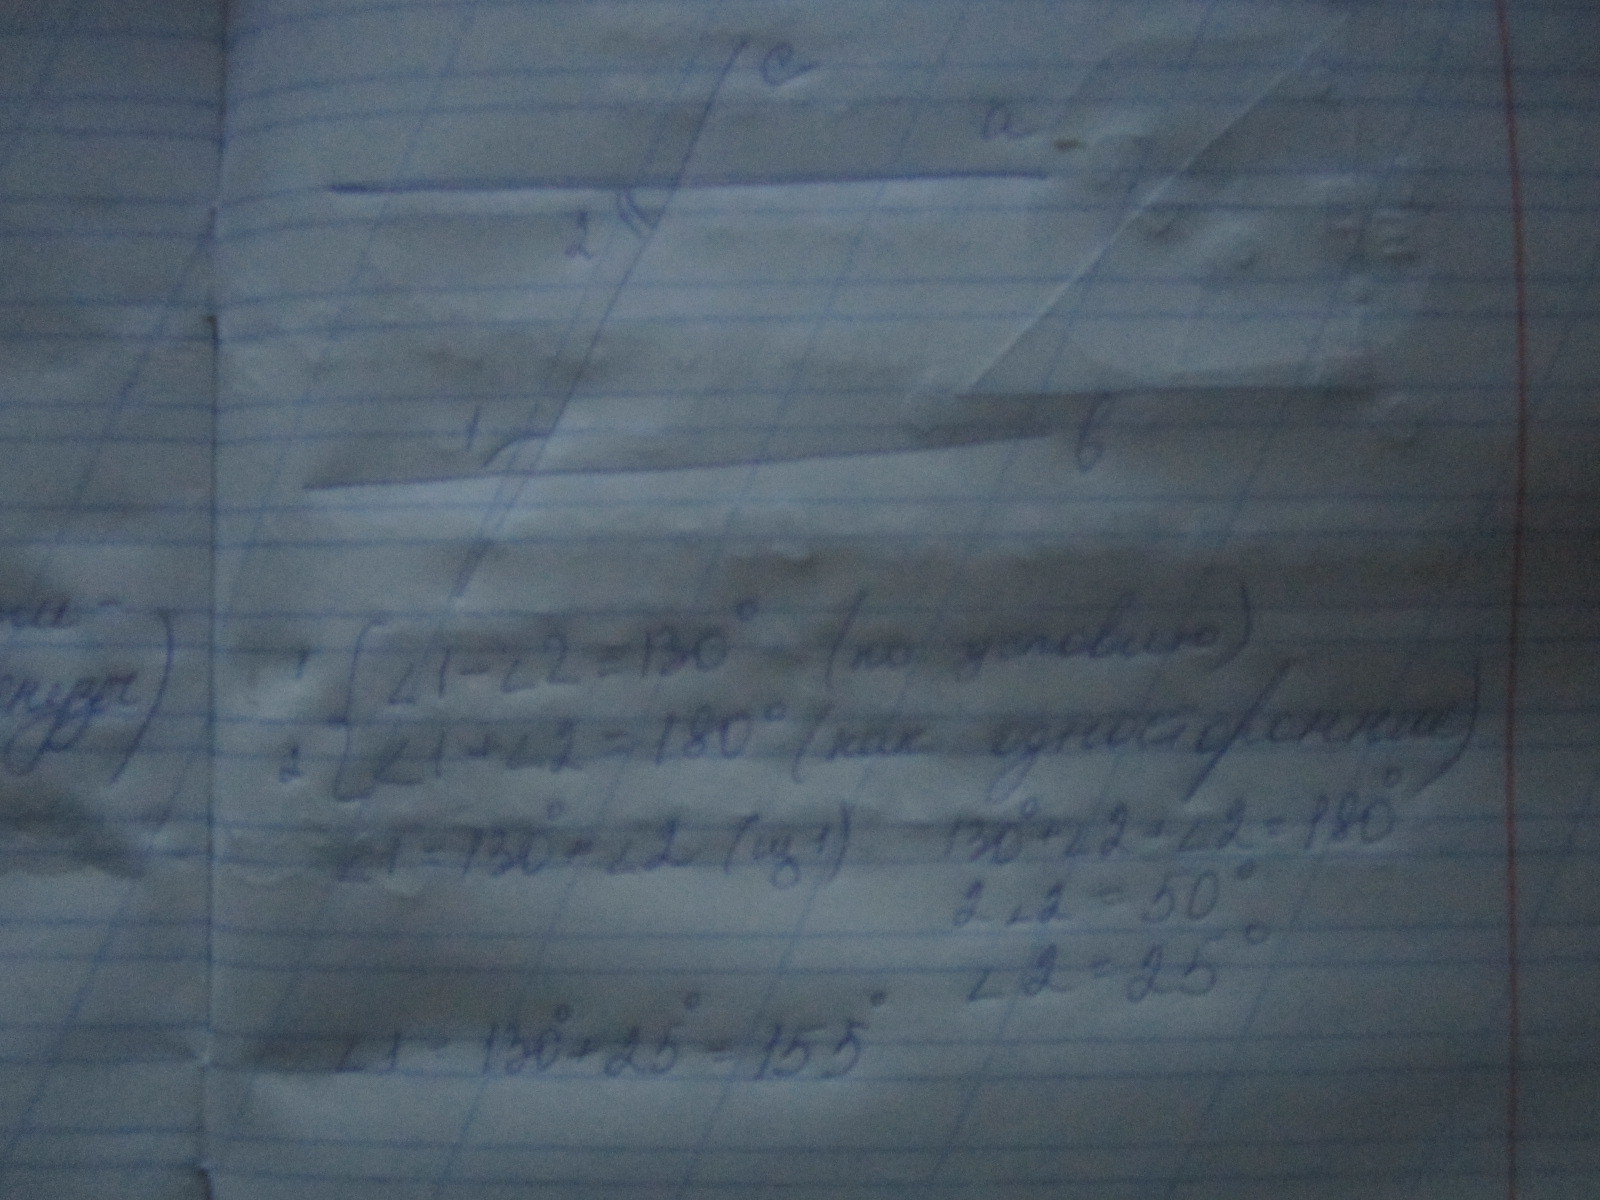 c
a
2
1
b
на-
енузы)
1 ∠1-∠2=130° (по условию)
2 ∠1+∠2=180° (как односторонние)
∠1=130°+∠2 (из 1) 130°+∠2+∠2=180°
2∠2=50°
∠2=25°
∠1=130°+25°=155°